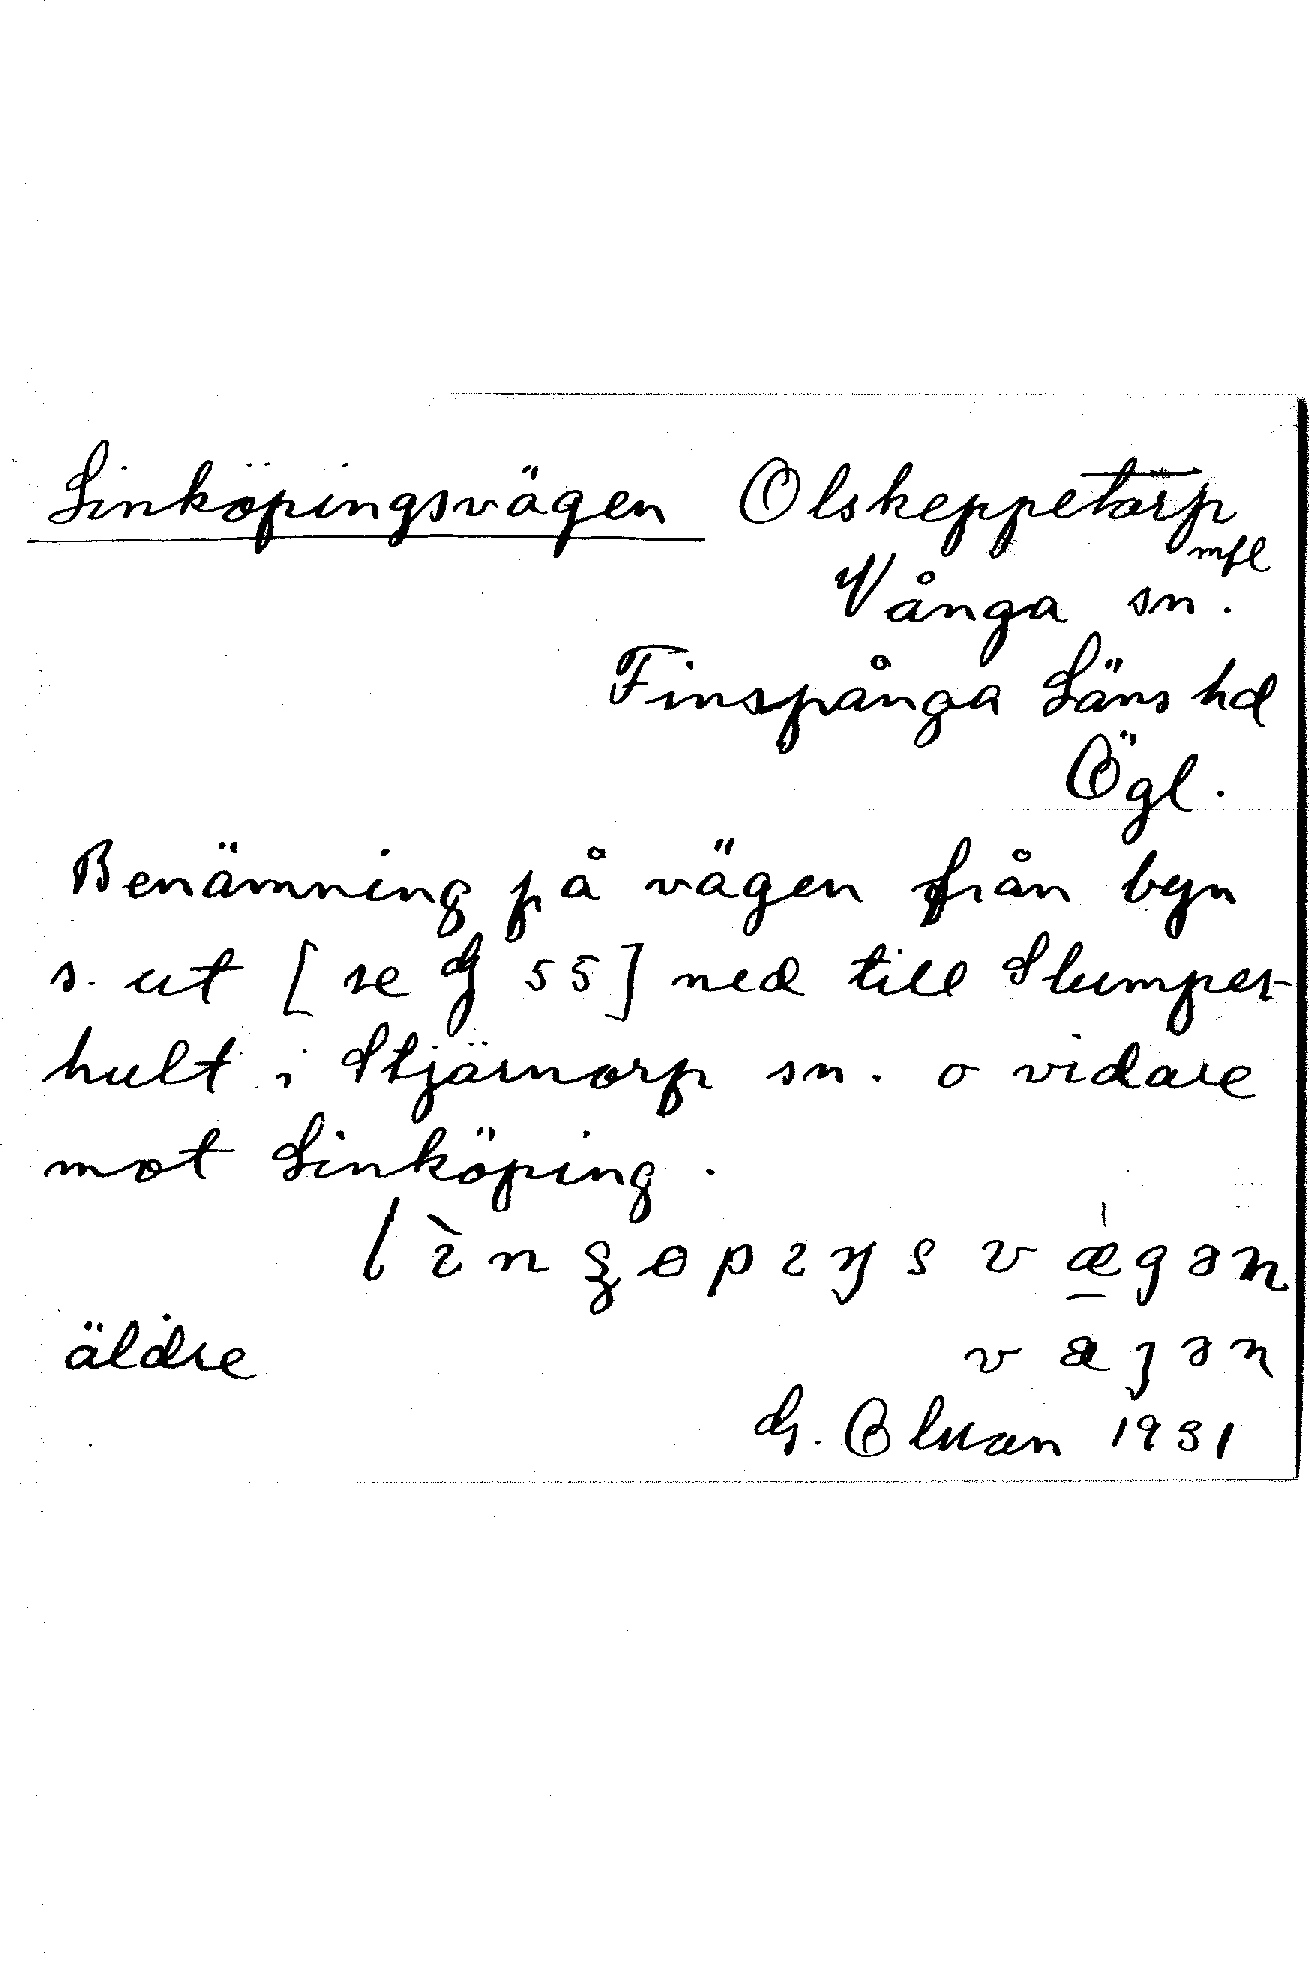 Linköpingsvägen Olskeppetorp
mfl
Vånga sn.
Finspånga Läns hd
Ögl.
Benämning på vägen från byn
s. ut [se G 55] ned till Slumpers-
hult i Stjärnorp sn. o vidare
mot Linköping.
vægən
äldre væȷən
G. 1931